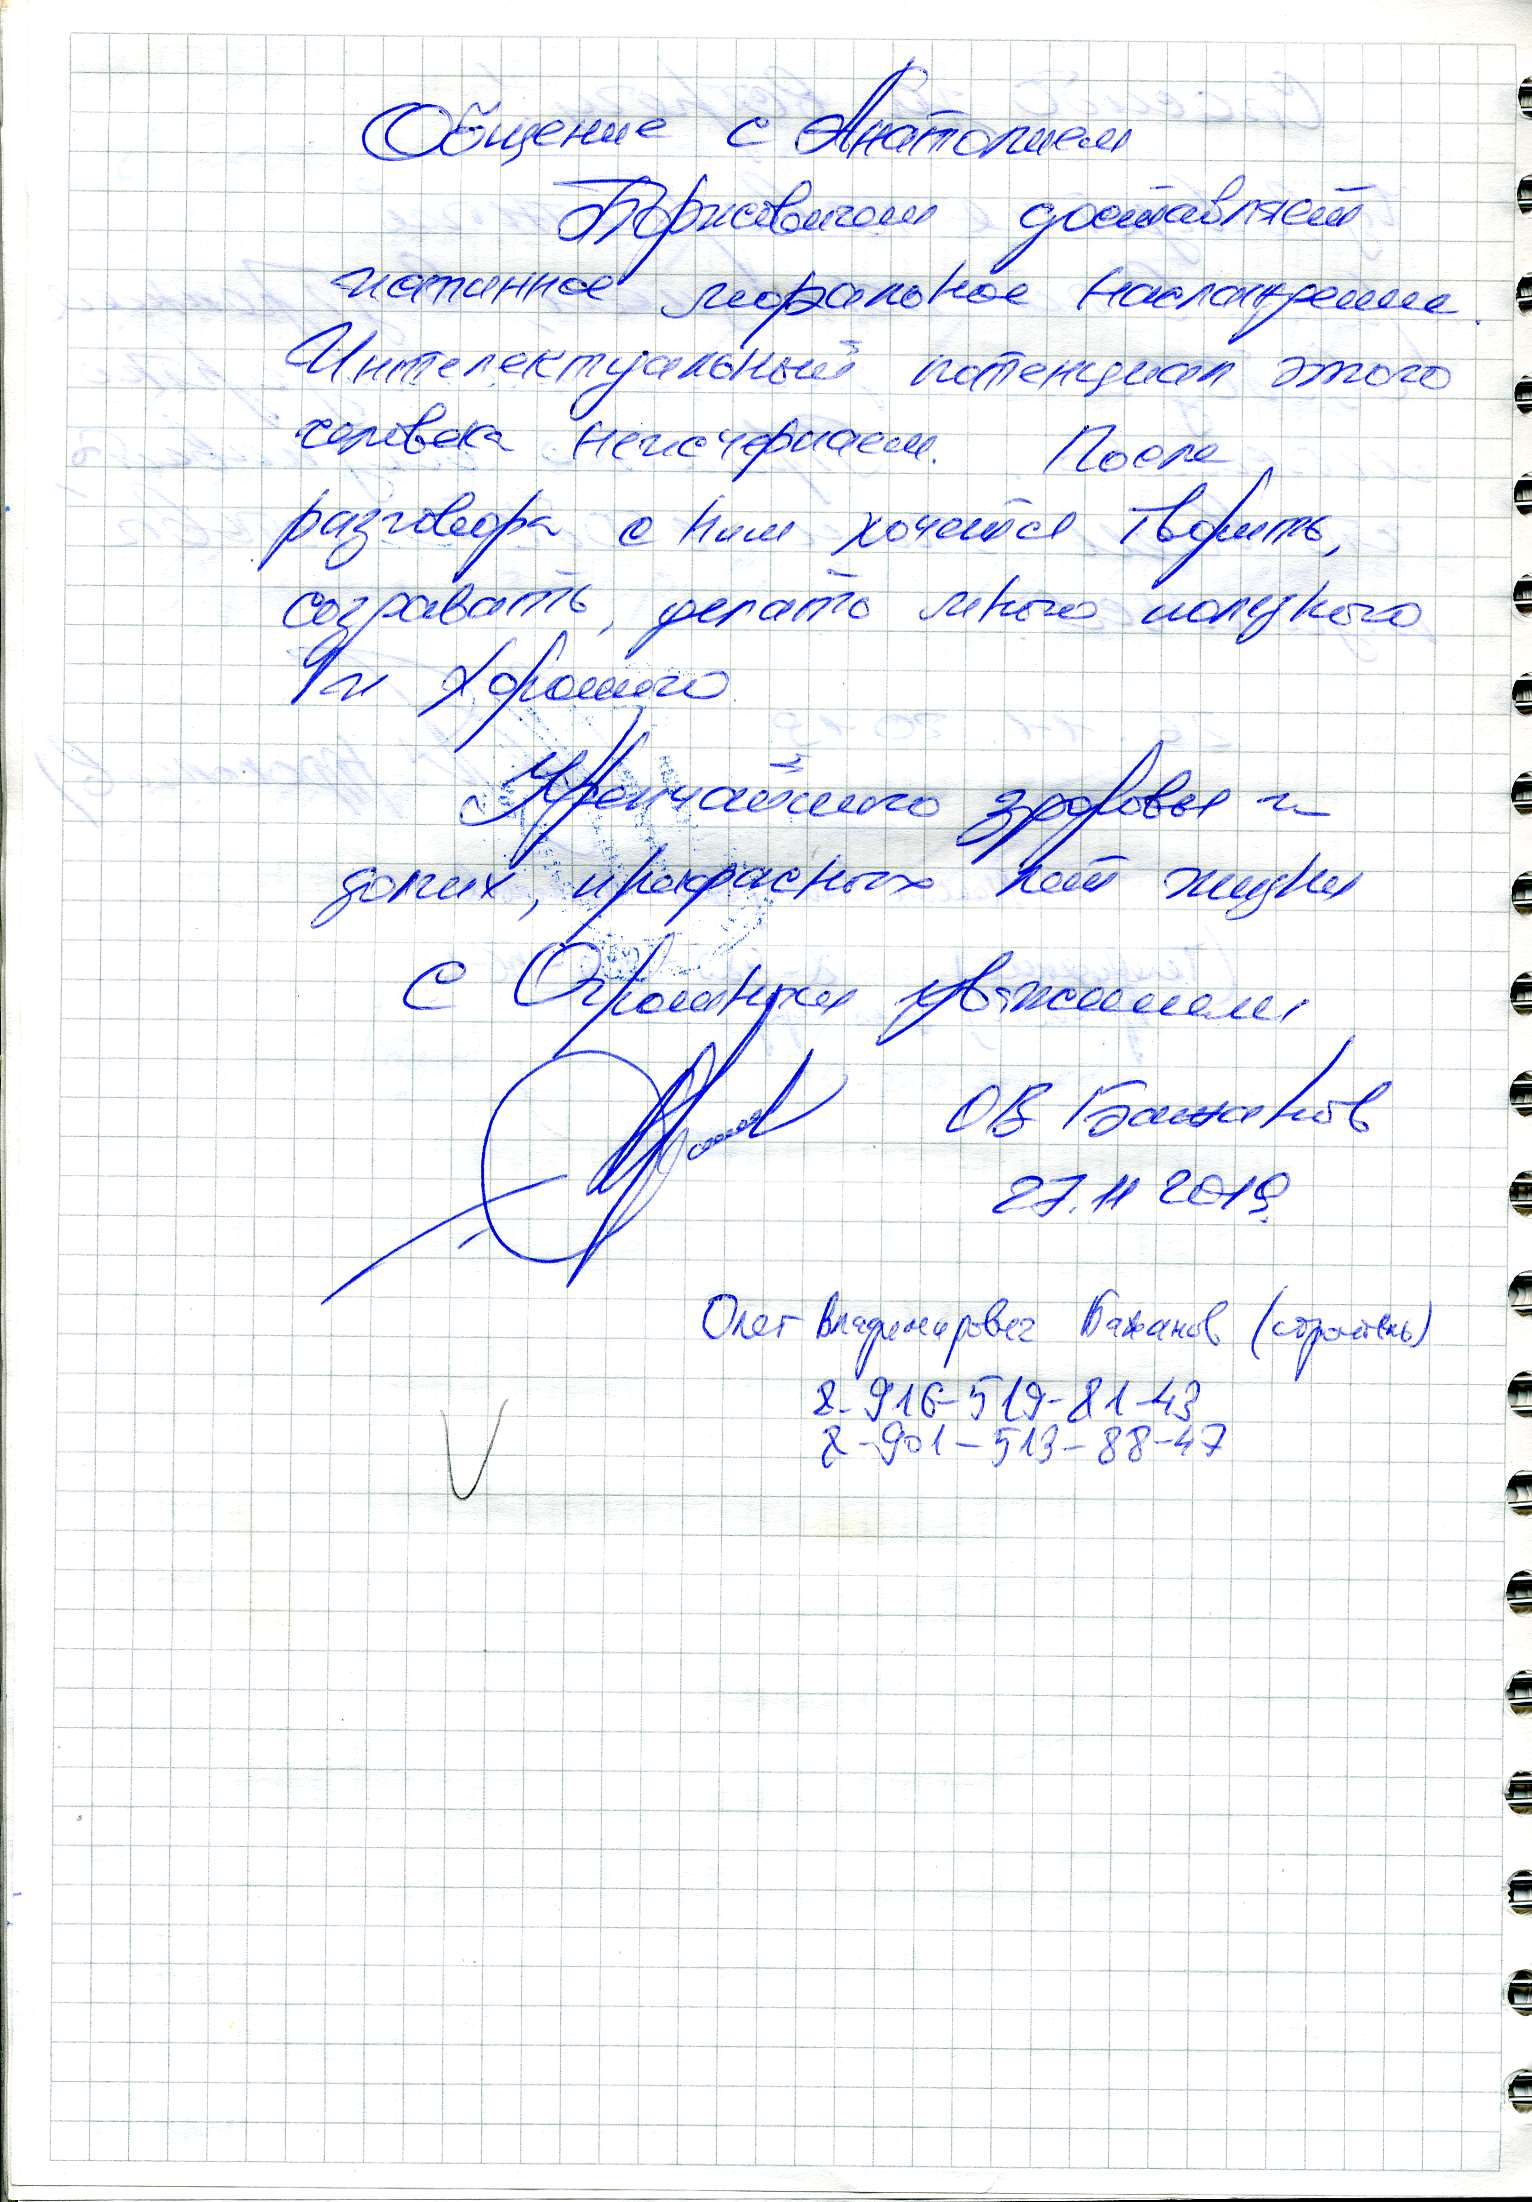 Общение с Анатолием
Борисовичом доставляет
истинное моральное наслаждение.
Интелектуальный потенциал этого
человека неисчерпаем. После
разговора с ним хочется творить,
создавать, делать много полезного
и хорошего
Крепчайшего здоровья и
долгих, прекрасных лет жизни
С Огромным уважением,
ОВ Бажанов
27.11 2019
Олег Владимирович Бажанов (строитель)
8-916-519-81-43
8-901-513-88-47